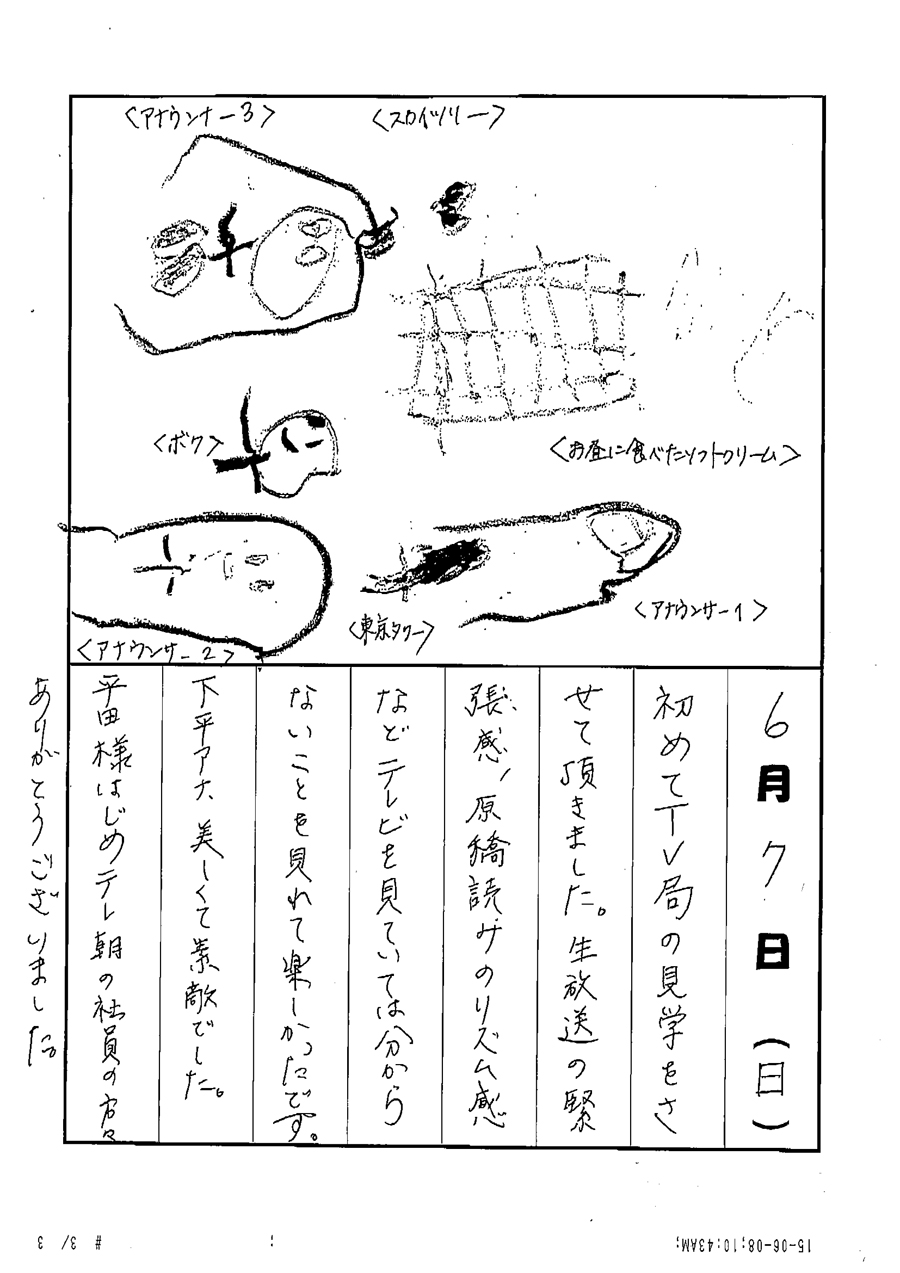 〈アナウンナー3〉
〈スロイツリー〉
〈ボク〉
〈お昼に食べたソフトクリーム〉
〈アナウンサー1〉
〈東京タワー〉
〈アナウンサー2〉
6月7日(日)
初めてTV局の見学をさ
せて頂きました。生放送の緊
張感、原稿読みのリズム感
などテレビを見ていては分から
ないことを見れて楽しかったです。
下平アナ、美しくて素敵でした。
平田様はじめテレ朝の社員の方々
ありがとうございました。
15-06-08;10:43AM;
;
# 3/ 3